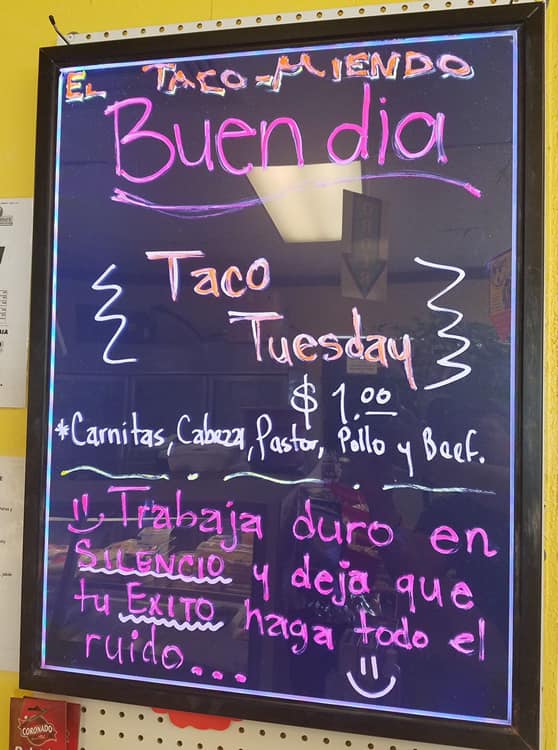 EL TACO-MIENDO
Buen dia
Taco
Tuesday
$ 1.00
*Carnitas, Cabeza, Pastor, Pollo y Beef.
Trabaja duro en
SILENCIO y deja que
tu EXITO haga todo el
ruido...
CORONADO